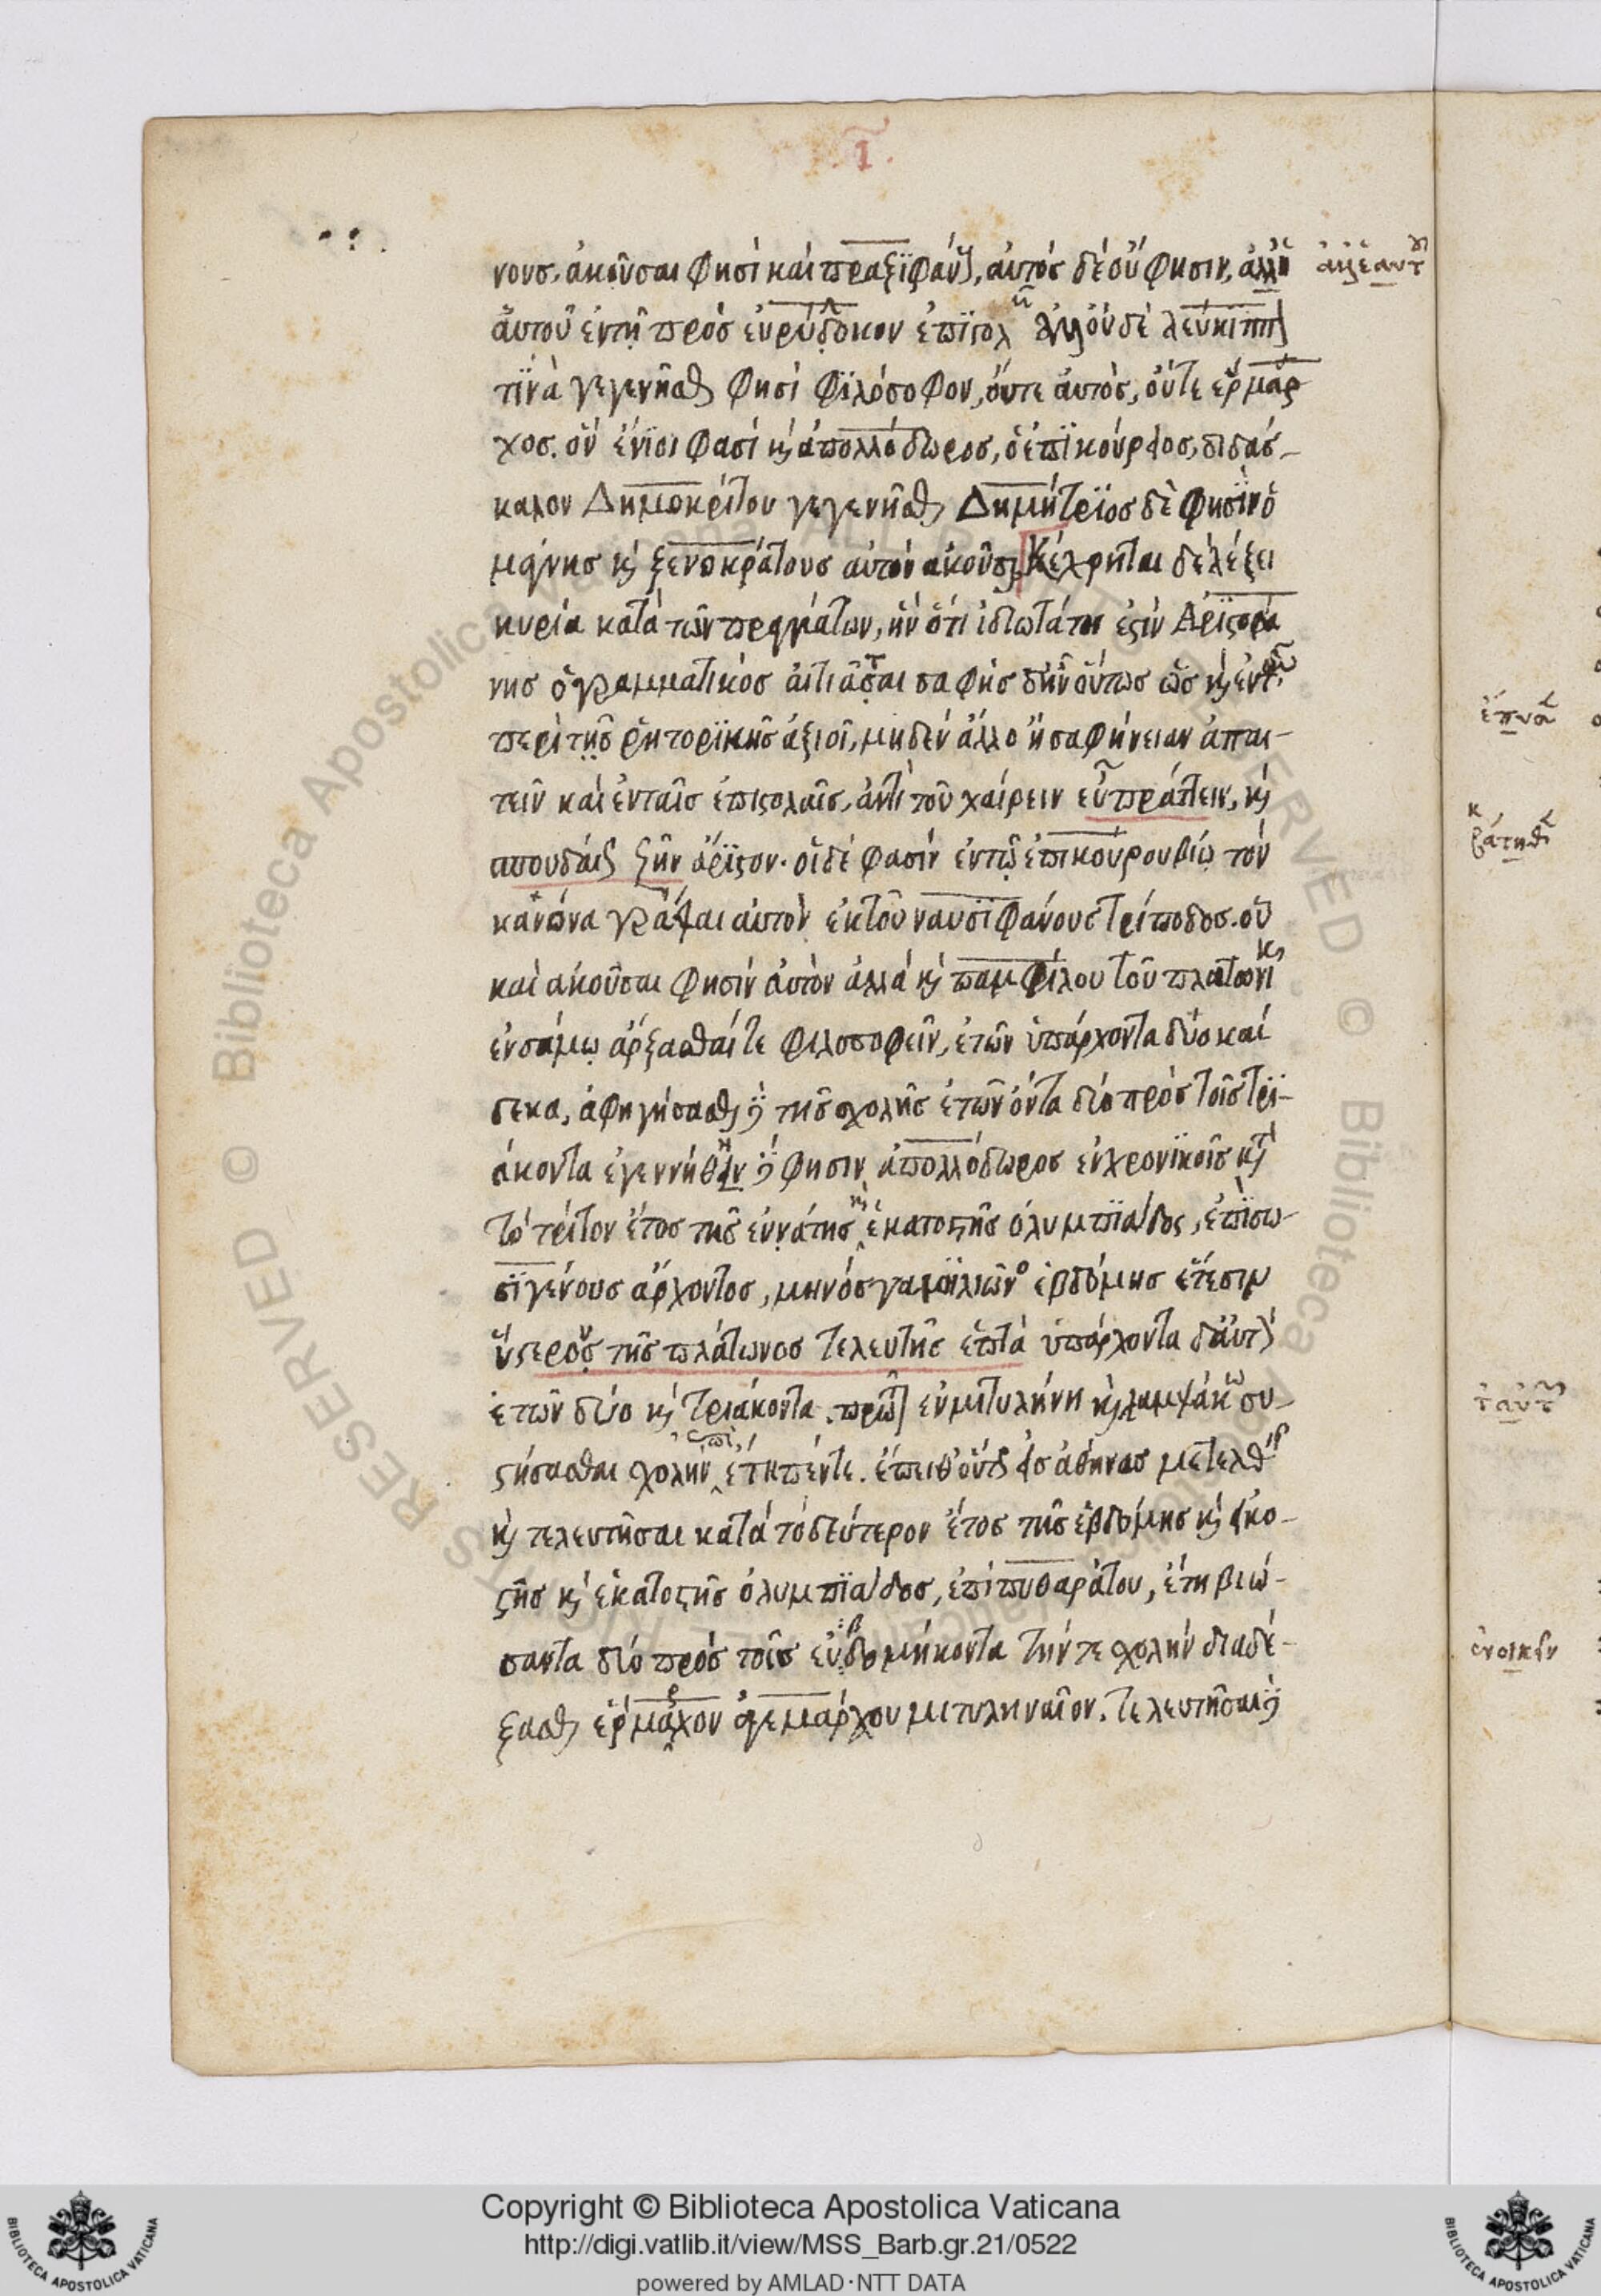 ῑ
νους, ἀκοῦσαι φησὶ καὶ πραξιφάνους, αὐτὸς δὲ οὔ φησιν, ἀλλ'
αὑτοῦ ἐν τῇ πρὸς εὐρύδοκον ἐπιστολῇ ἀλλ' οὐδὲ λεύκιππον
τινὰ γεγενῆσθαι φησὶ φιλόσοφον, οὔτε αὐτὸς, οὔτε ἕρμαρ
χος. ὃν ἔνιοι φασὶ καὶ ἀπολλόδωρος, ὁ ἐπικούρειος, διδάσ-
καλον Δημοκρίτου γεγενῆσθαι Δημήτριος δὲ φησὶν ὁ
μάγνης καὶ ξενοκράτους αὐτὸν ἀκοῦσαι Κέχρηται δὲ λέξει
κυρία κατὰ τῶν πραγμάτων, ἣν ὅτι ἰδιωτάτη ἐστὶν Ἀριστοφά
νης ὁ γραμματικὸς αἰτιᾶται σαφὴς δ' ἦν οὕτως ὡς καὶ ἐν τῷ
περὶ τῆς ῥητορικῆς ἀξιοῖ, μηδὲν ἄλλο ἢ σαφήνειαν ἀπαι-
τεῖν καὶ ἐν ταῖς ἐπιστολαῖς, ἀντὶ τοῦ χαίρειν εὖ πράττειν, καὶ
σπουδαίως ζῆν ἄριστον. οἱ δέ φασὶν ἐν τῷ ἐπικούρου βίῳ τὸν
κανώνα γράψαι αὐτὸν ἐκ τοῦ ναυσιφάνους τρίποδος. οὗ
καὶ ἀκοῦσαι φησὶν αὐτὸν ἀλλὰ καὶ παμφίλου τοῦ πλατωνικ
ἐν σάμῳ ἄρξασθαί τε φιλοσοφεῖν, ἐτῶν ὑπάρχοντα δύο καί
δεκα, ἀφηγήσασθαι δὲ τῆς σχολῆς ἐτῶν ὄντα δύο πρὸς τοῖς τρι-
άκοντα ἐγεννήθη δὲ φησιν ἀπολλόδωρος ἐν χρονικοῖς κατὰ
τὸ τρίτον ἔτος τῆς ἐννάτης καὶ ἑκατοστῆς ὀλυμπιάδος, ἐπὶ σω-
σιγένους ἄρχοντος, μηνὸς γαμηλιῶνος ἑβδόμης ἔτεσιν
ὕστερον τῆς πλάτωνος τελευτῆς ἑπτὰ ὑπάρχοντα δ' αὐτὸν
ἐτῶν δύο καὶ τριάκοντα πρῶτον ἐν μιτυλήνη καὶ λαμψάκω συ-
στήσασθαι σχολὴν ἐπὶ ἔτη πέντε. ἔπειθ' οὕτως εἰς ἀθήνας μετελθεῖν
καὶ τελευτῆσαι κατὰ τὸ δεύτερον ἔτος τῆς ἑβδόμης καὶ εἰκο-
στῆς καὶ ἑκατοστῆς ὀλυμπιάδος, ἐπὶ πυθαράτου, ἔτη βιώ-
σαντα δύο πρὸς τοῖς ἑβδομήκοντα τήν τε σχολὴν διαδέ-
ξασθαι ἕρμαρχον ἀγεμάρχου μιτυληναῖον. τελευτῆσαι δὲ
Copyright © Biblioteca Apostolica Vaticana
http://digi.vatlib.it/view/MSS_Barb.gr.21/0522
powered by AMLAD·NTT DATA